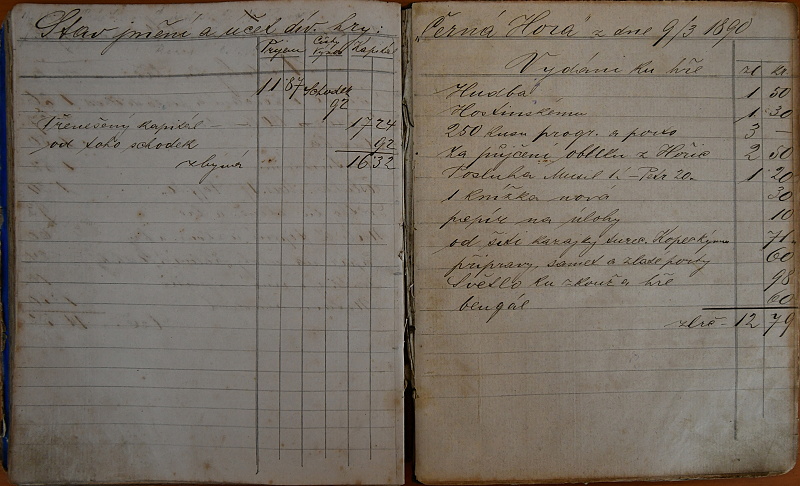 Stav jmění a účet div. hry:
Příjem Čistý Výdej Kapitál
11 87 Schodek
92
Přenešený kapitál – 17 24
od toho schodek 92
zbývá 16 32
„Černá Hora" z dne 9/3 1890
Vydání ku hře zl kr
Hudba 1 50
Hostinskému 1 30
250 kusů progr. a porto 3 –
Za půjčení obleku z Hořic 2 50
Posluha Musil 1.– Petr 20. 1 20
1 knížka nová 30
papír na úlohy 10
od šití turec. Kopeckému 71
přípravy, samet a zlaté porty 60
Světlo ku zkouš a hře 98
bengál 60
zlrč – 12 79